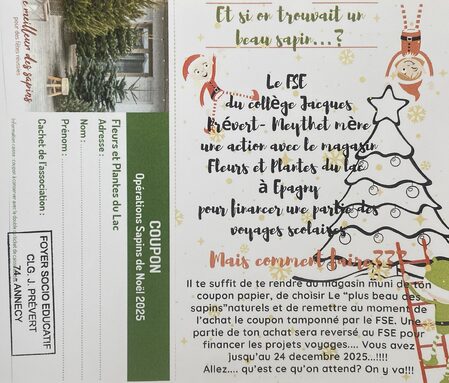 Et si on trouvait un
beau sapin...?
Le FSE
du collège Jacques
Prévert- Meythet mène
une action avec le magasin
Fleurs et Plantes du lac
à Epagny
pour financer une partie des
voyages scolaires
Mais comment faire???
Il te suffit de te rendre au magasin muni de ton
coupon papier, de choisir Le "plus beau des
sapins"naturels et de remettre au moment de
l'achat le coupon tamponné par le FSE. Une
partie de ton achat sera reversé au FSE pour
financer les projets voyages.... Vous avez
jusqu'au 24 decembre 2025...!!!!
Allez.... qu'est ce qu'on attend? On y va!!!
e meilleur des sapins
pour des fêtes réussies
COUPON
Opérations Sapins de Noël 2025
Fleurs et Plantes du Lac
Adresse :
Nom :
Prénom :
Cachet de l'association :
FOYER SOCIO EDUCATIF
CLG. J. PRÉVERT
74 - ANNECY